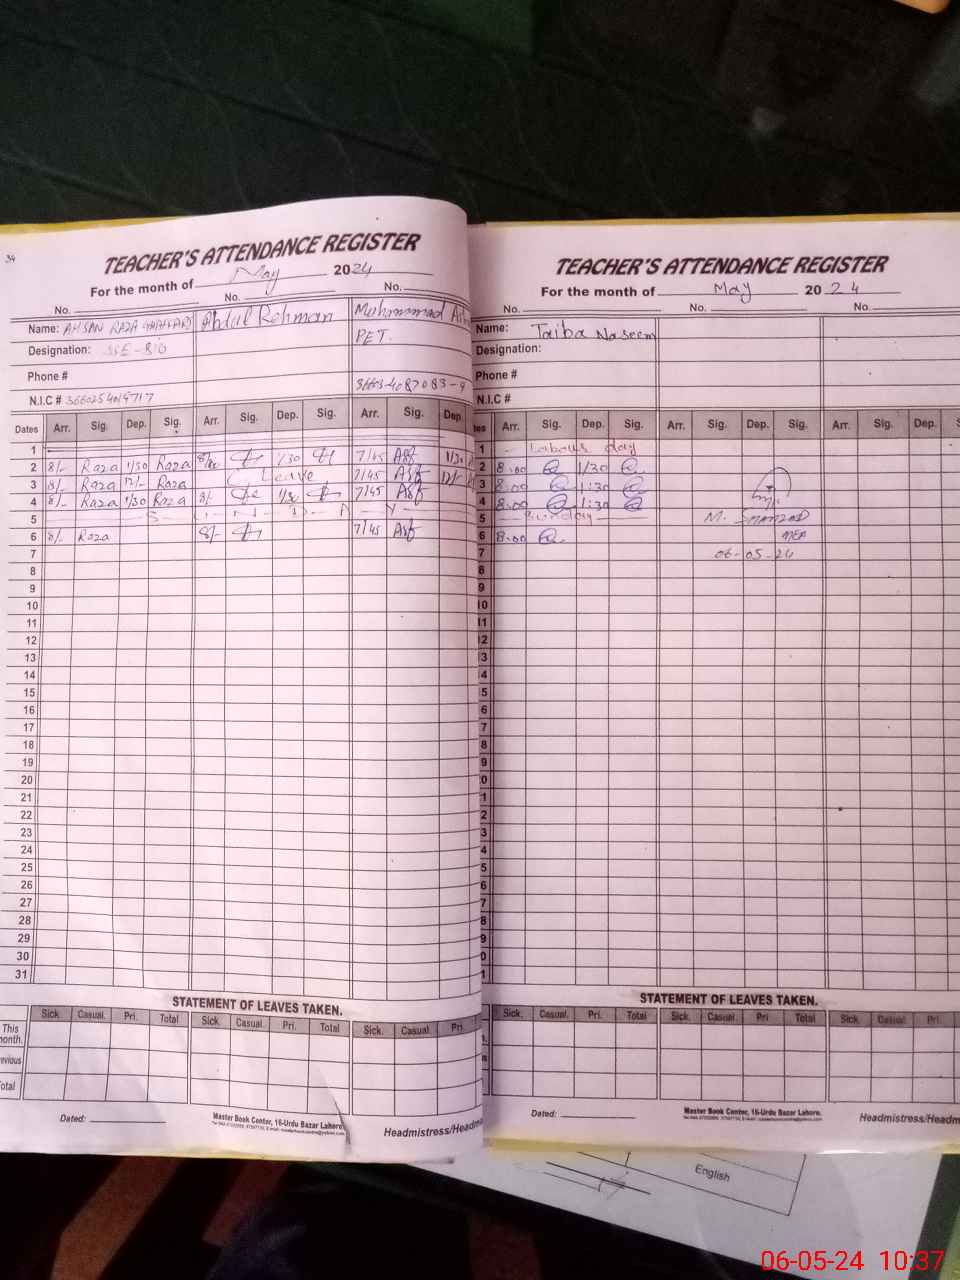 34
TEACHER'S ATTENDANCE REGISTER
For the month of May 2024
No. No. No.
Name: AHSAN RAZA Abdul Rehman Muhammad
Designation: SSE-BIO PET.
Phone #
N.I.C #
Dates Arr. Sig. Dep. Sig. Arr. Sig. Dep. Sig. Arr. Sig. Dep.
1
2 8/- Raza 1/30 Raza 1/30 7/45 Asf 1/30
3 8/- Raza 12/- Raza C Leave 7/45 Asf 12/-
4 8/- Raza 1/30 Raza 8/- 1/30 7/45 Asf
5 - S - U - N - D - A - Y -
6 8/- Raza 8/- 7/45 Asf
7
8
9
10
11
12
13
14
15
16
17
18
19
20
21
22
23
24
25
26
27
28
29
30
31
STATEMENT OF LEAVES TAKEN.
Sick. Casual. Pri. Total Sick. Casual. Pri. Total Sick. Casual Pri.
This
month.
evious
otal
Dated:
Master Book Center, 16-Urdu Bazar Lahore.
Headmistress/Headma
TEACHER'S ATTENDANCE REGISTER
For the month of May 2024
No. No. No.
Name: Taiba Naseem
Designation:
Phone #
N.I.C #
tes Arr. Sig. Dep. Sig. Arr. Sig. Dep. Sig. Arr. Sig. Dep. S
1 Labour day
2 8:00 1/30
3 8:00 1:30
4 8:00 1:30
5 Sunday M. SHAHZAD
6 8:00 MEA
7 06-05-24
8
9
10
11
12
3
4
5
6
7
8
9
0
1
2
3
4
5
6
7
8
9
0
1
STATEMENT OF LEAVES TAKEN.
Sick. Casual. Pri. Total Sick. Casual. Pri. Total Sick. Casual. Pri.
Dated:
Master Book Center, 16-Urdu Bazar Lahore.
Headmistress/Headm
English
06-05-24 10:37